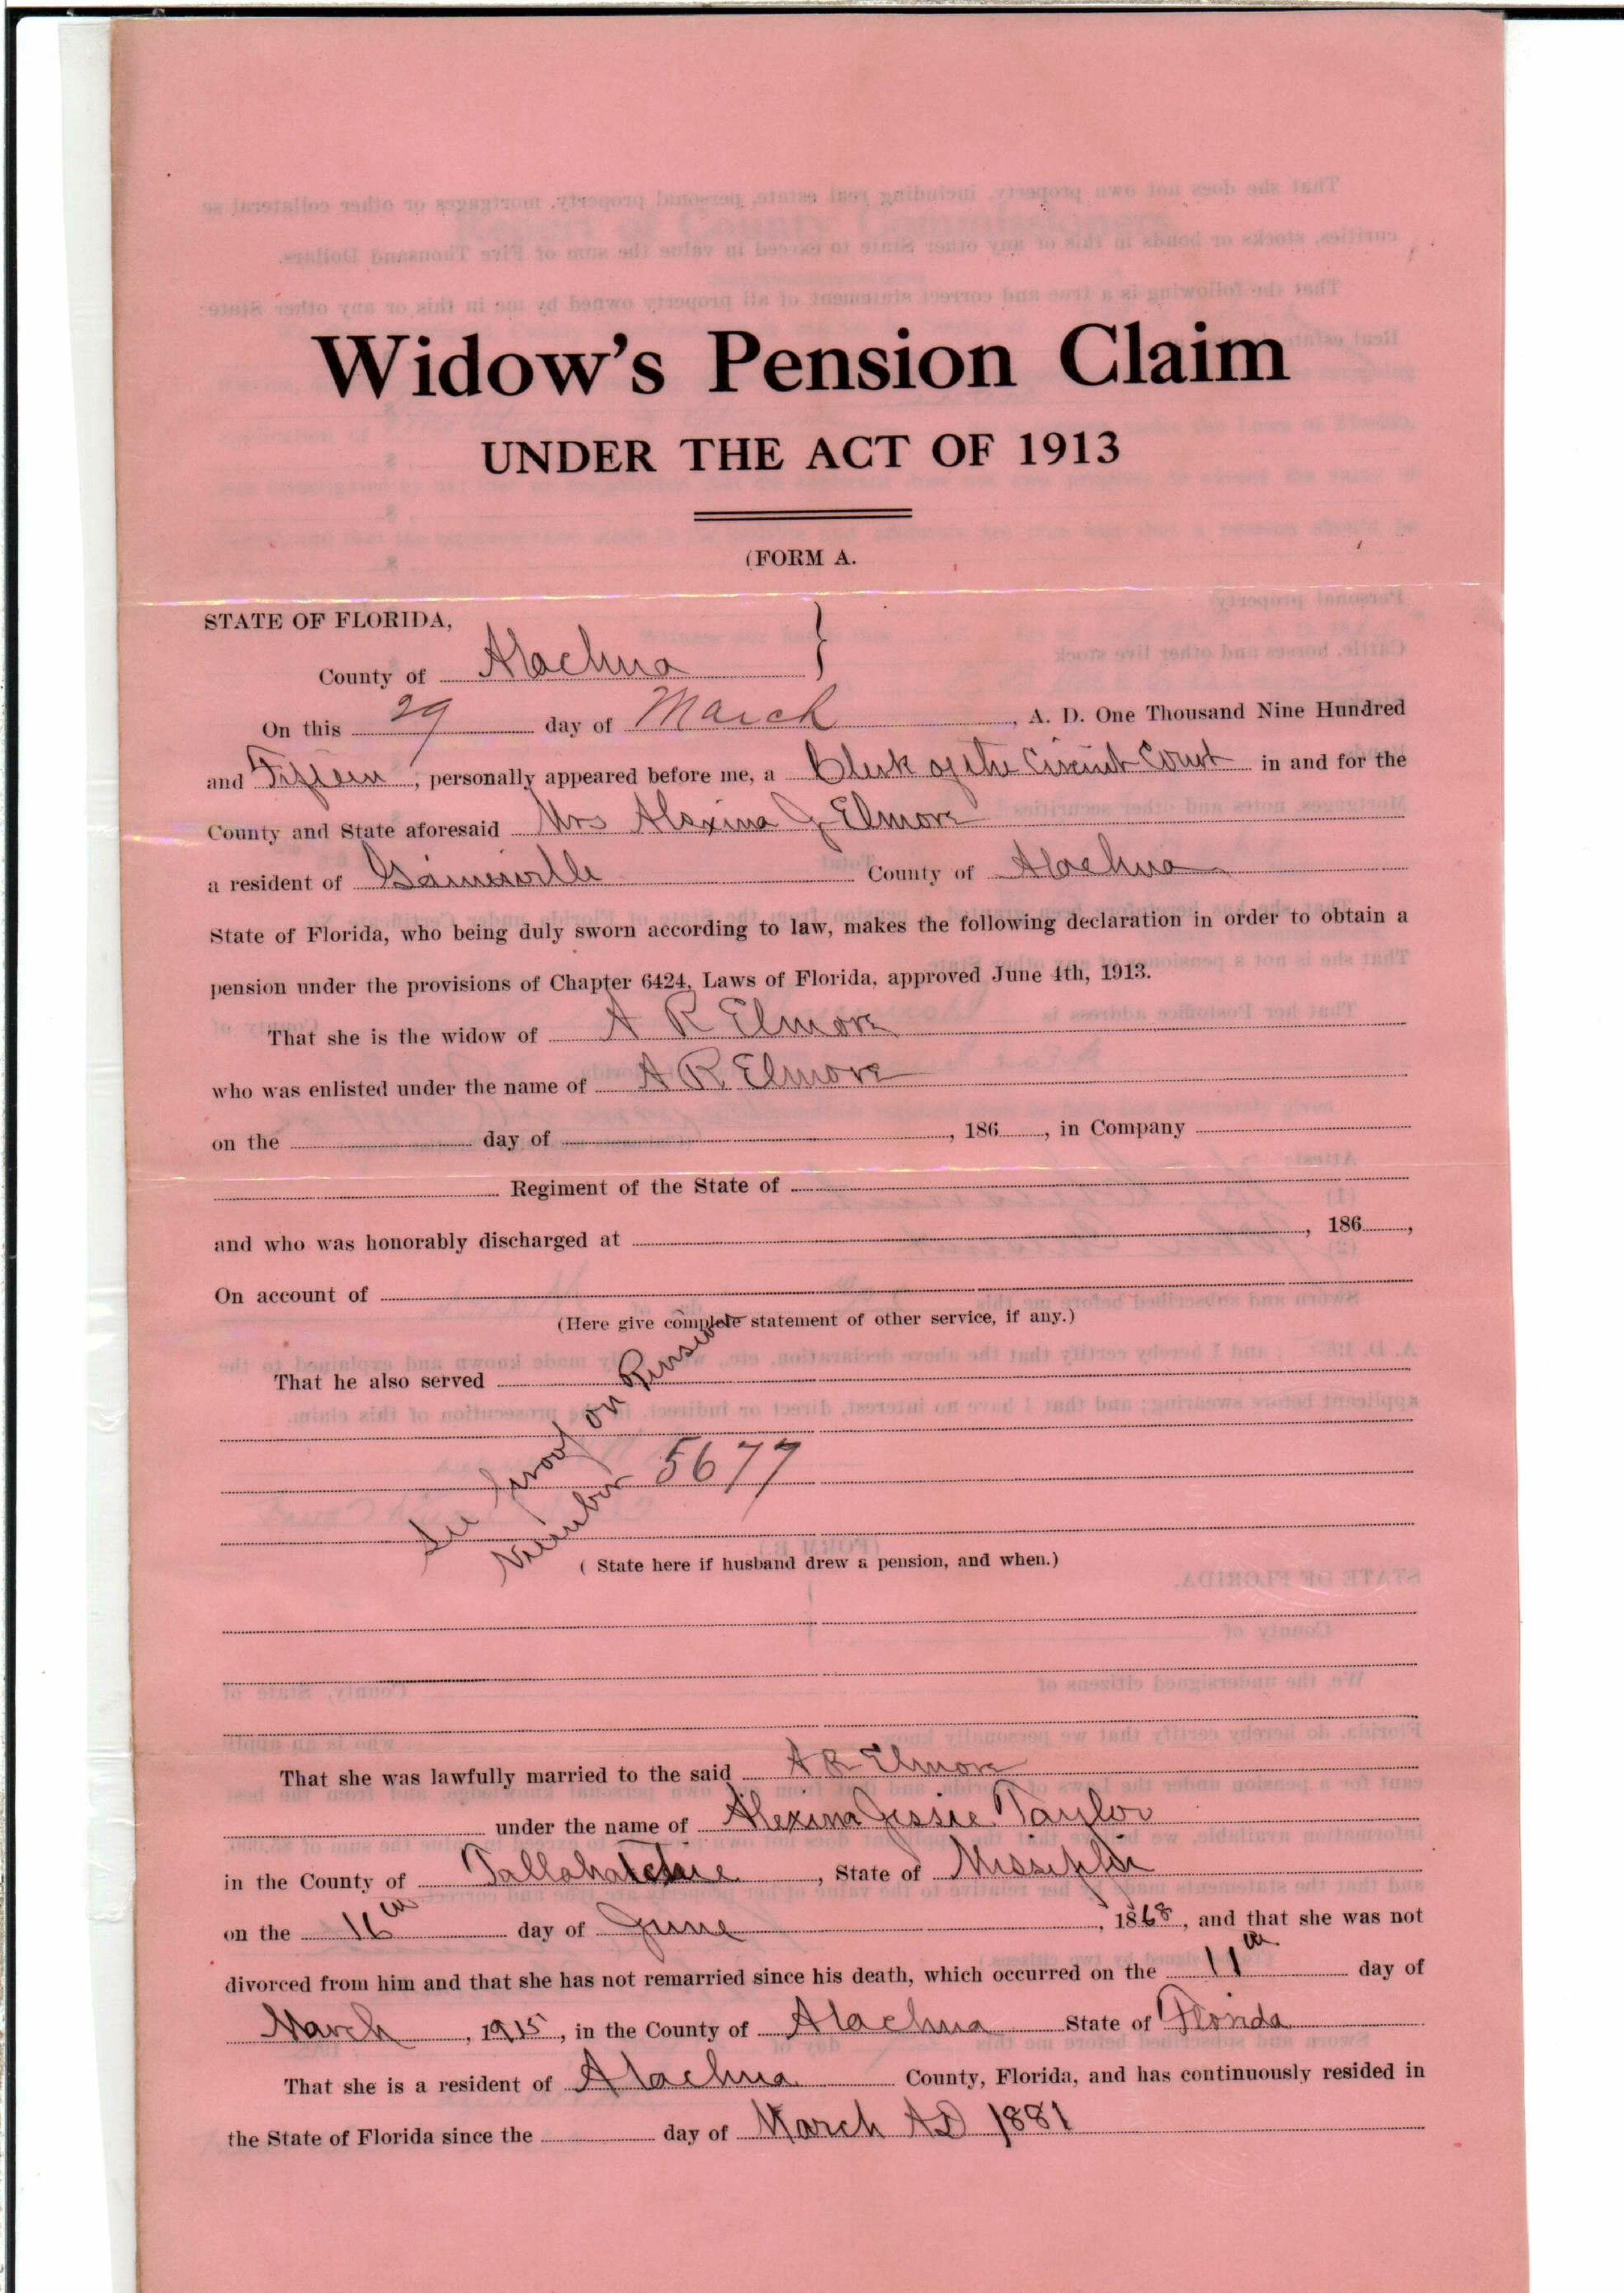 Widow's Pension Claim
UNDER THE ACT OF 1913
(FORM A.
STATE OF FLORIDA,
County of Alachua }
On this 29 day of March, A. D. One Thousand Nine Hundred
and Fifteen, personally appeared before me, a Clerk of the Circuit Court in and for the
County and State aforesaid Mrs Alexina J Elmore
a resident of Gainesville County of Alachua
State of Florida, who being duly sworn according to law, makes the following declaration in order to obtain a
pension under the provisions of Chapter 6424, Laws of Florida, approved June 4th, 1913.
That she is the widow of A R Elmore
who was enlisted under the name of A R Elmore
on the day of , 186 , in Company
Regiment of the State of
and who was honorably discharged at , 186 ,
On account of
(Here give complete statement of other service, if any.)
That he also served
See proof on Pension
Number 5677
( State here if husband drew a pension, and when.)
That she was lawfully married to the said A R Elmore
under the name of Alexina Jessie Taylor
in the County of Tallahatchie, State of Missippi
on the 16th day of June, 1868, and that she was not
divorced from him and that she has not remarried since his death, which occurred on the 11th day of
March, 1915, in the County of Alachua State of Florida
That she is a resident of Alachua County, Florida, and has continuously resided in
the State of Florida since the day of March AD 1881